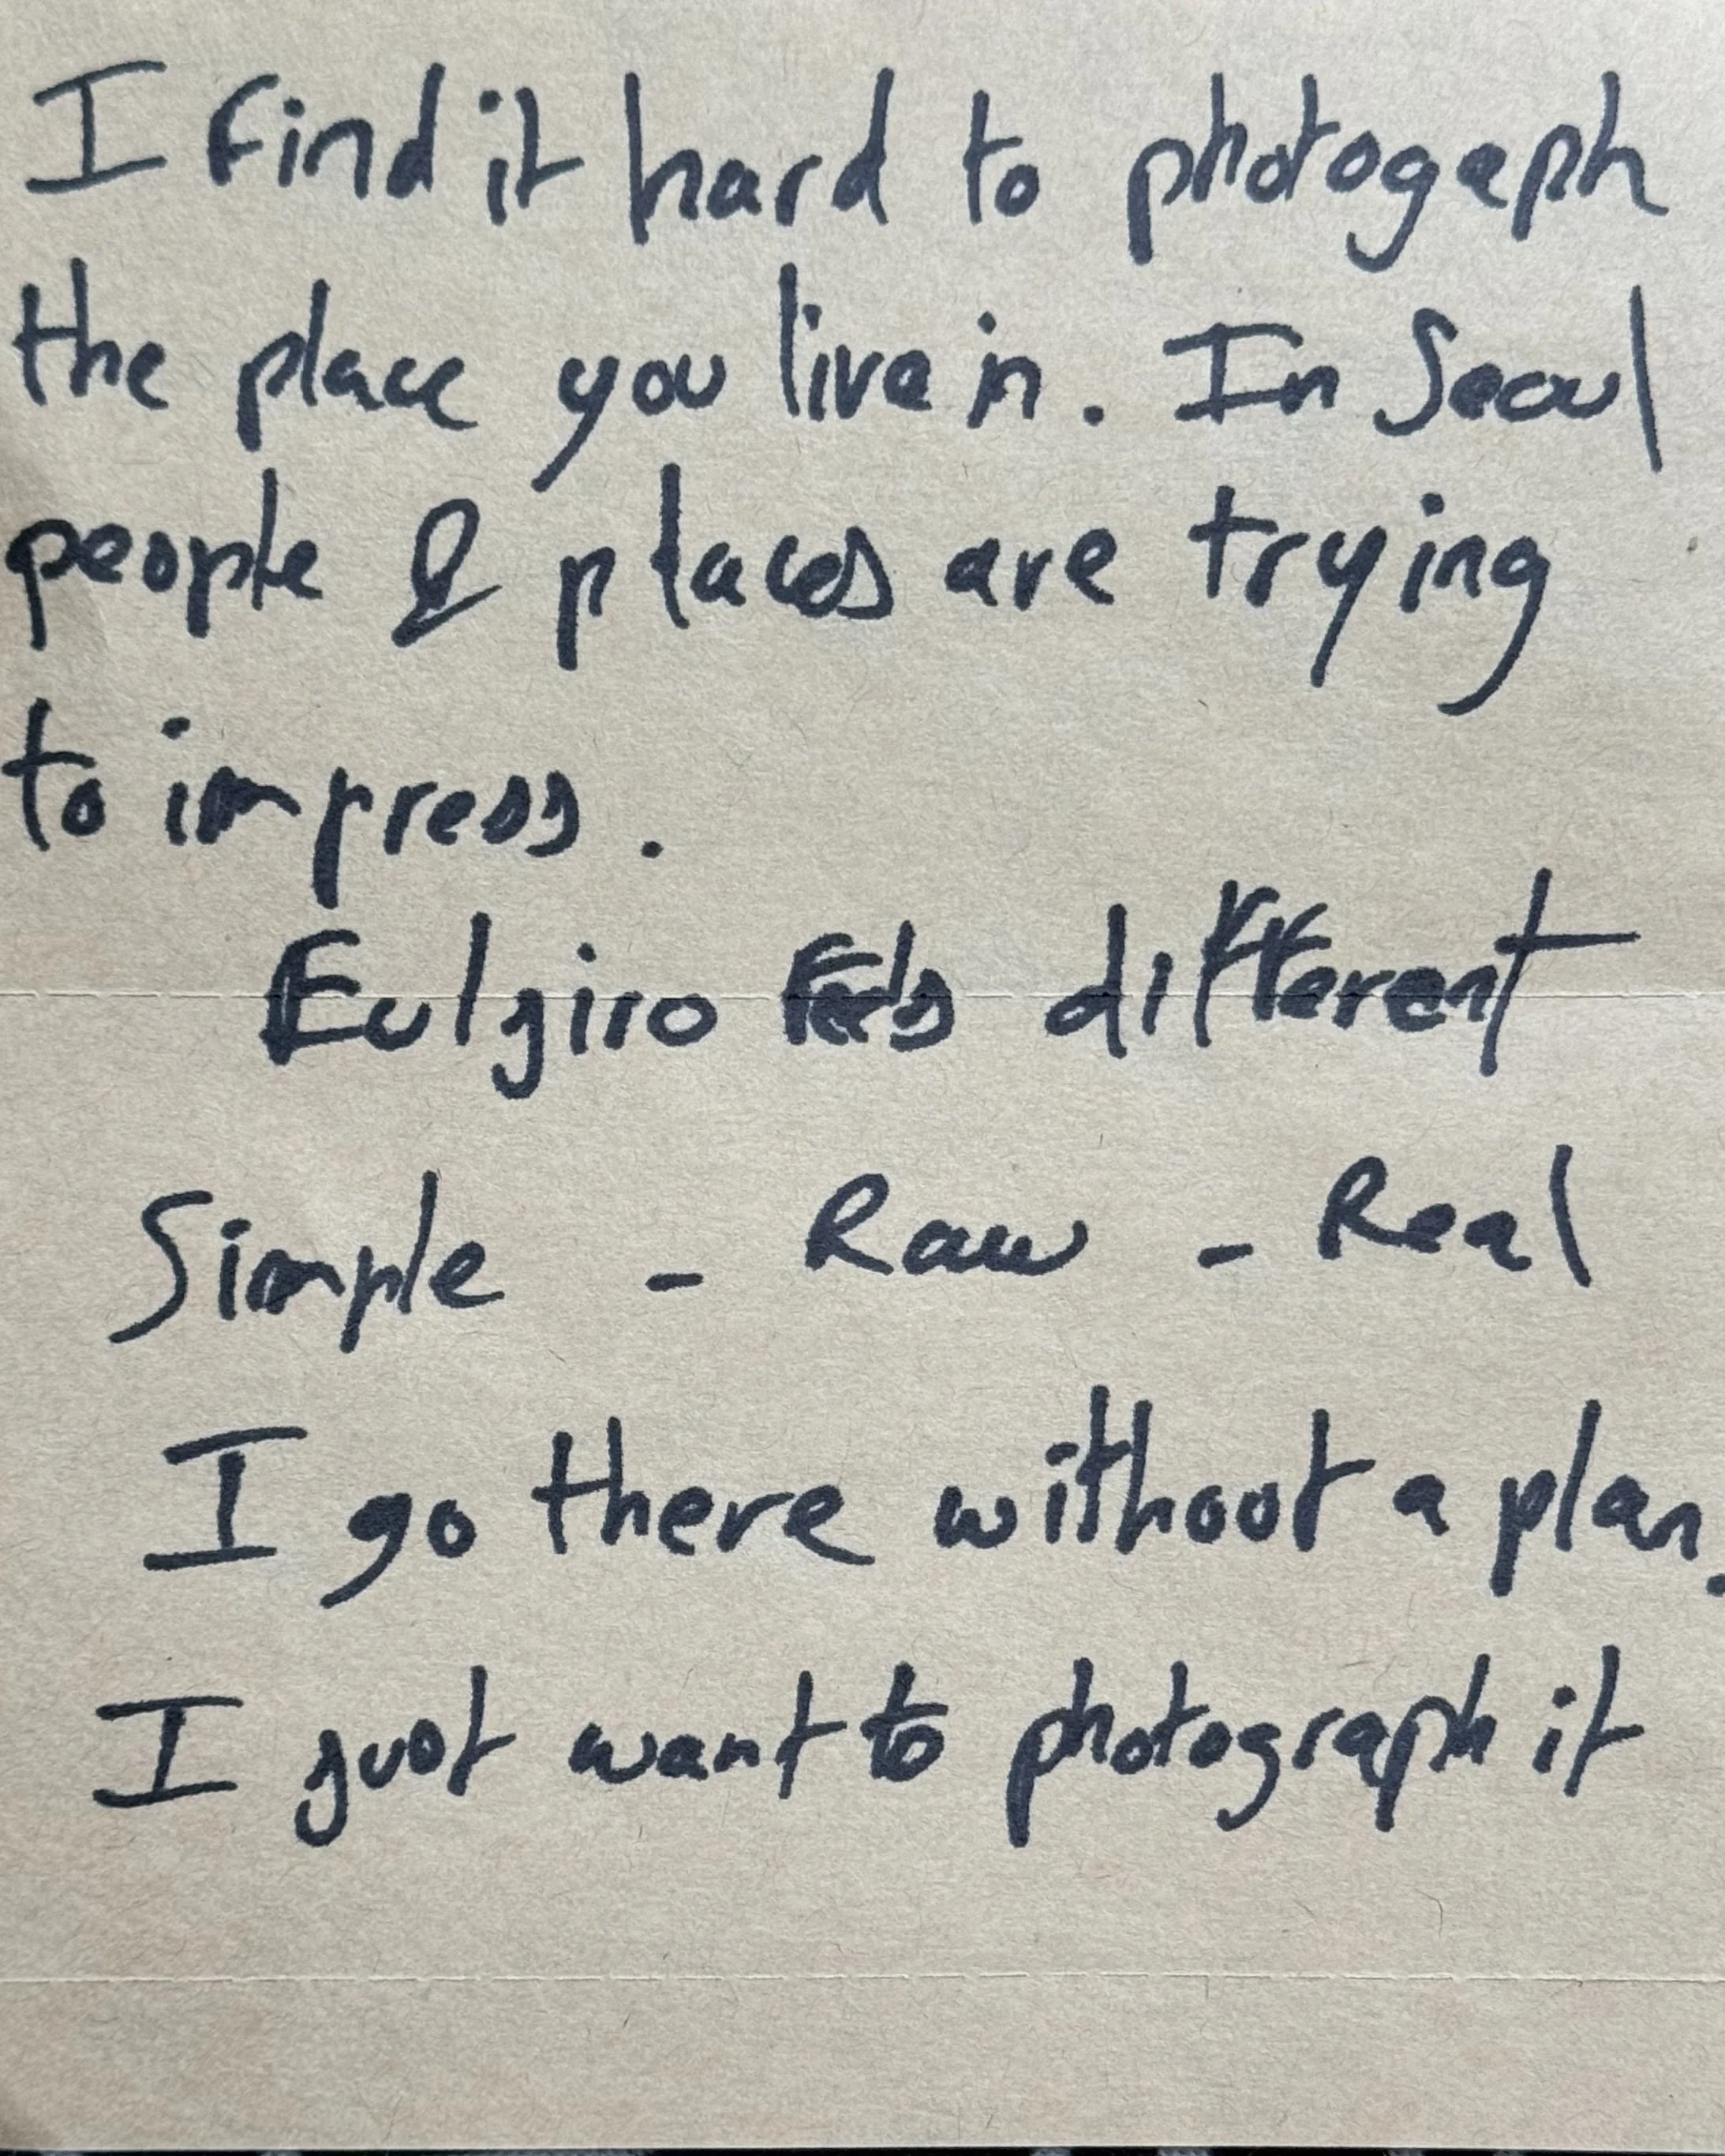 I find it hard to photogaph
the place you live in. In Seoul
people & places are trying
to impress.
Eulgiro Feels different
Simple - Raw - Real
I go there without a plan.
I just want to photograph it